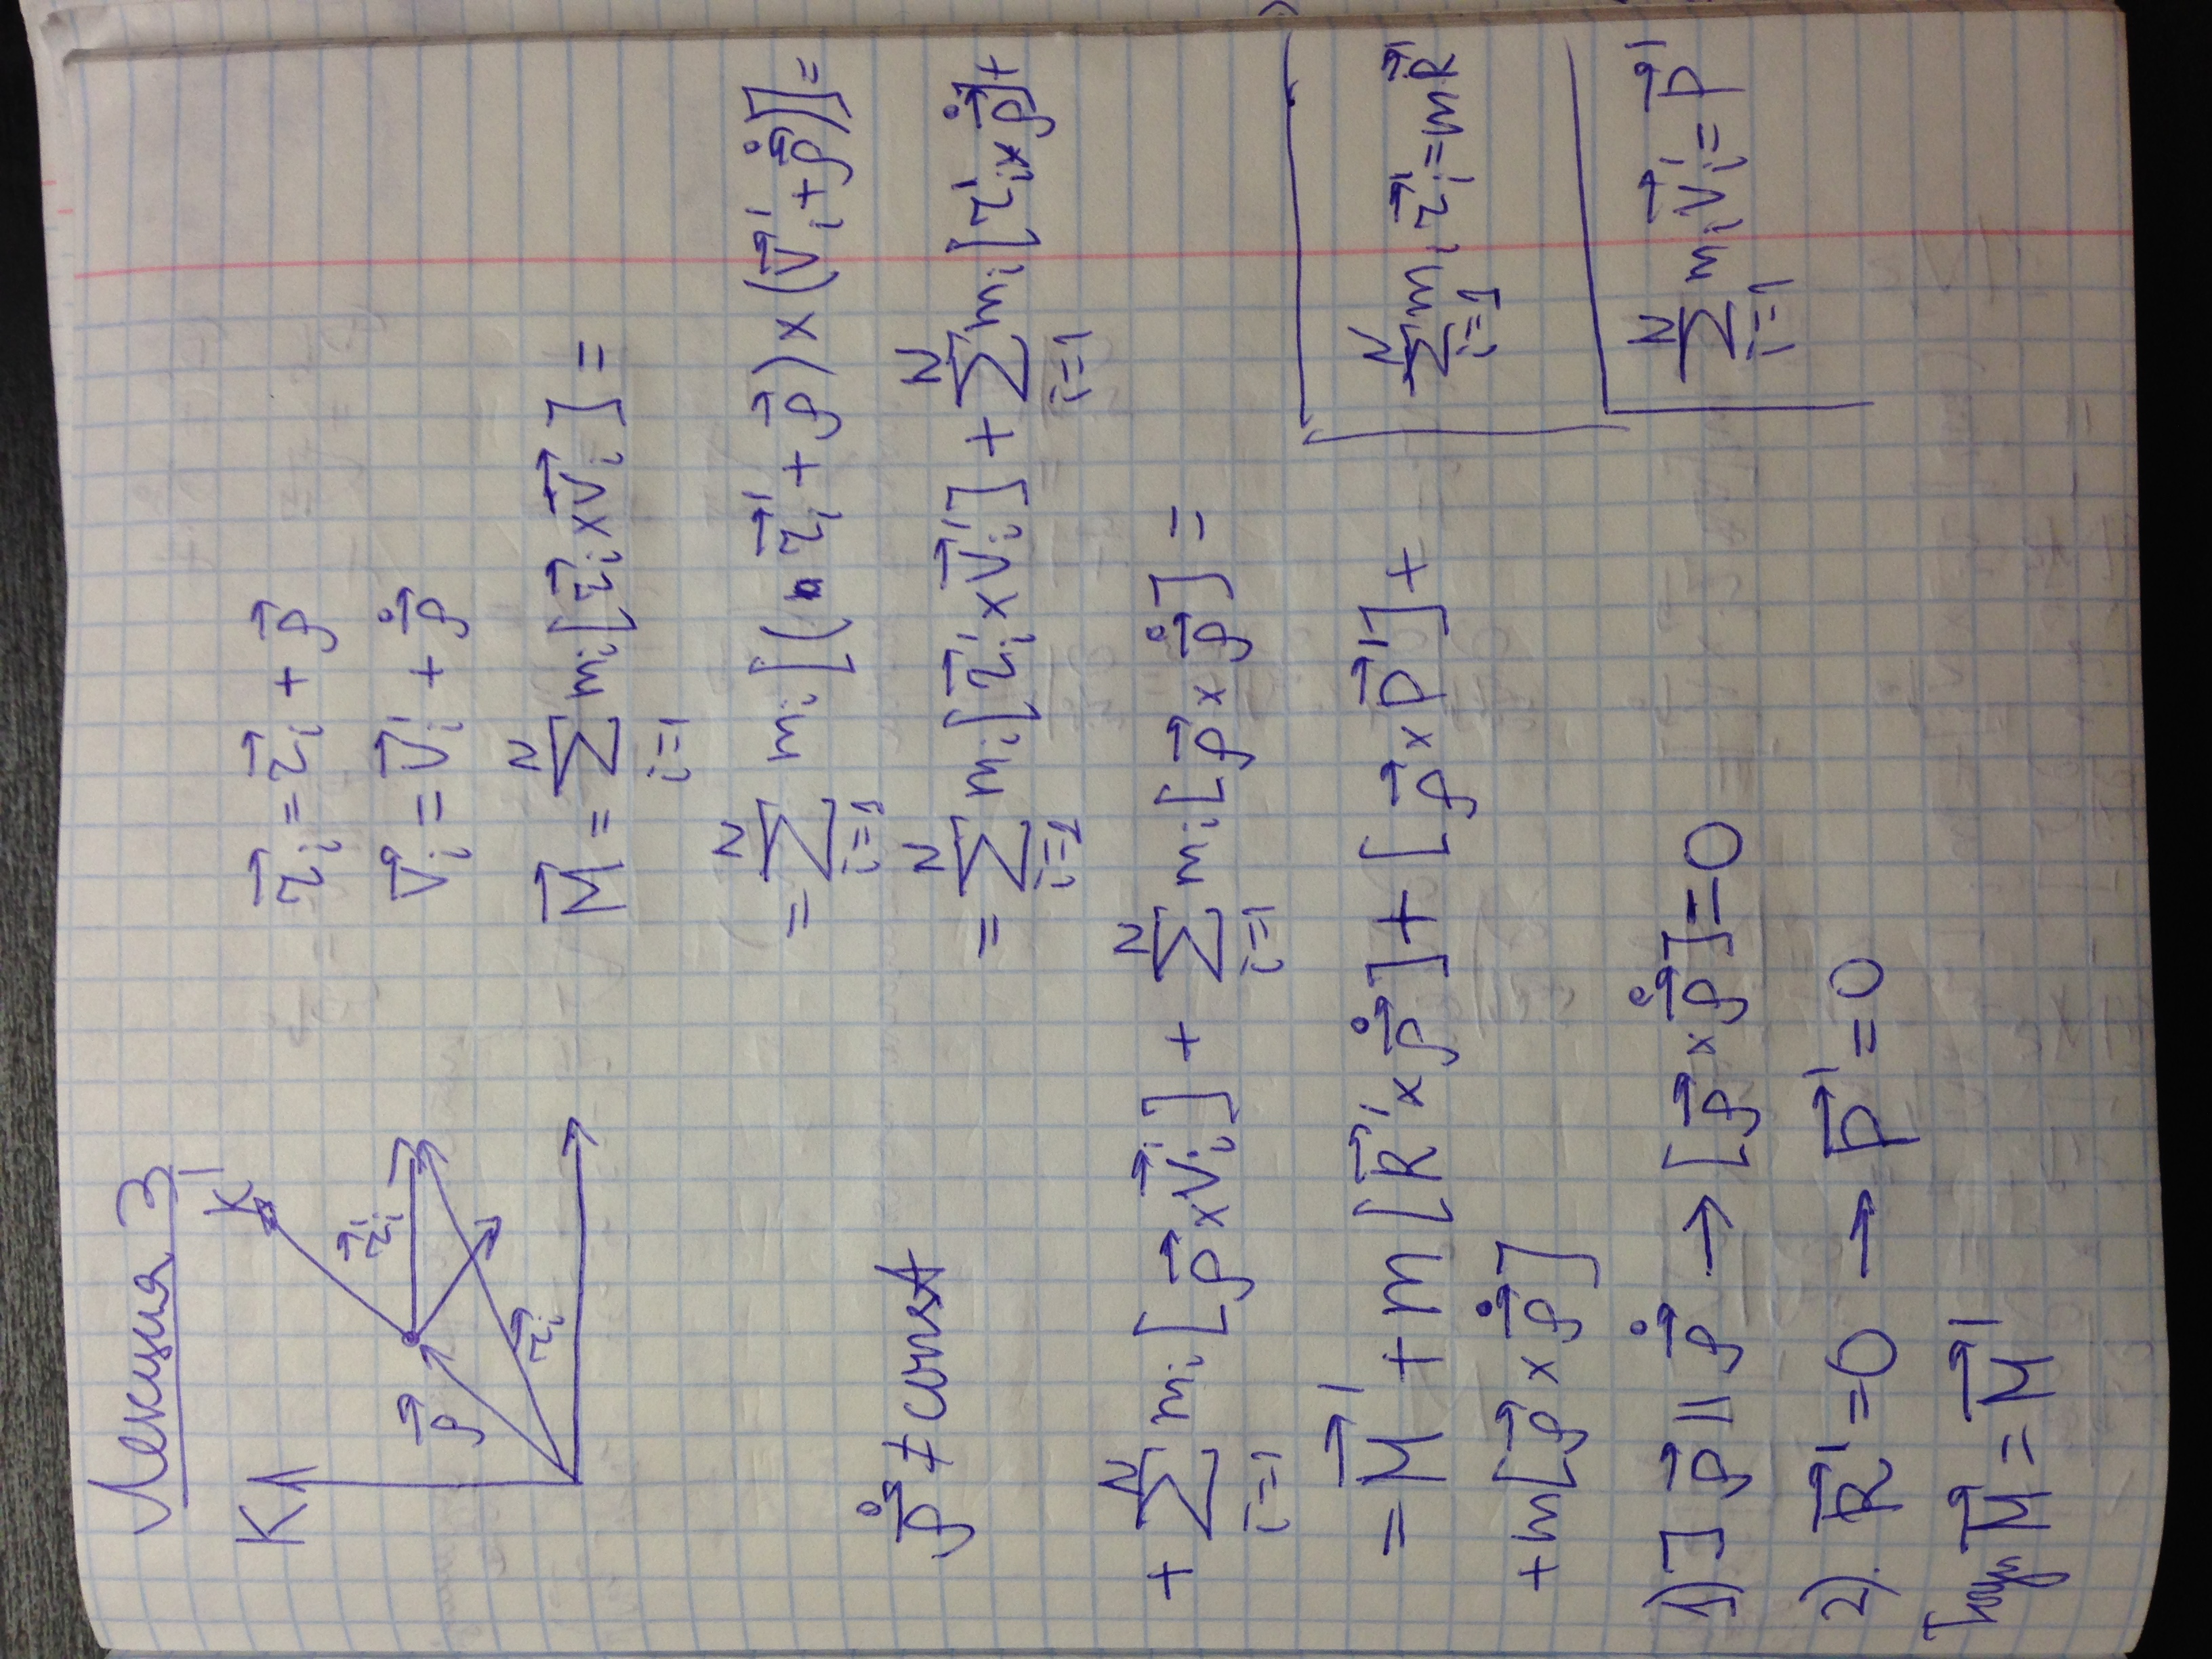 Лекция 3
K
K'
ρ⃗
r⃗ᵢ'
r⃗ᵢ
r⃗ᵢ = r⃗ᵢ' + ρ⃗
V⃗ᵢ = V⃗ᵢ' + ρ⃗̇
M⃗ = ∑ᵢ₌₁ᴺ mᵢ[r⃗ᵢ × V⃗ᵢ] =
= ∑ᵢ₌₁ᴺ mᵢ[(r⃗ᵢ' + ρ⃗) × (V⃗ᵢ' + ρ⃗̇)] =
ρ⃗̇ ≠ const
= ∑ᵢ₌₁ᴺ mᵢ[r⃗ᵢ' × V⃗ᵢ'] + ∑ᵢ₌₁ᴺ mᵢ[r⃗ᵢ' × ρ⃗̇] +
+ ∑ᵢ₌₁ᴺ mᵢ[ρ⃗ × V⃗ᵢ'] + ∑ᵢ₌₁ᴺ mᵢ[ρ⃗ × ρ⃗̇] =
= M⃗' + m[R⃗' × ρ⃗̇] + [ρ⃗ × P⃗'] +
+ m[ρ⃗ × ρ⃗̇]
∑ᵢ₌₁ᴺ mᵢ r⃗ᵢ' = mR⃗'
∑ᵢ₌₁ᴺ mᵢ V⃗ᵢ' = P⃗'
1) ] ρ⃗ ∥ ρ⃗̇ → [ρ⃗ × ρ⃗̇] = 0
2). R⃗' = 0 → P⃗' = 0
Тогда M⃗ = M⃗'